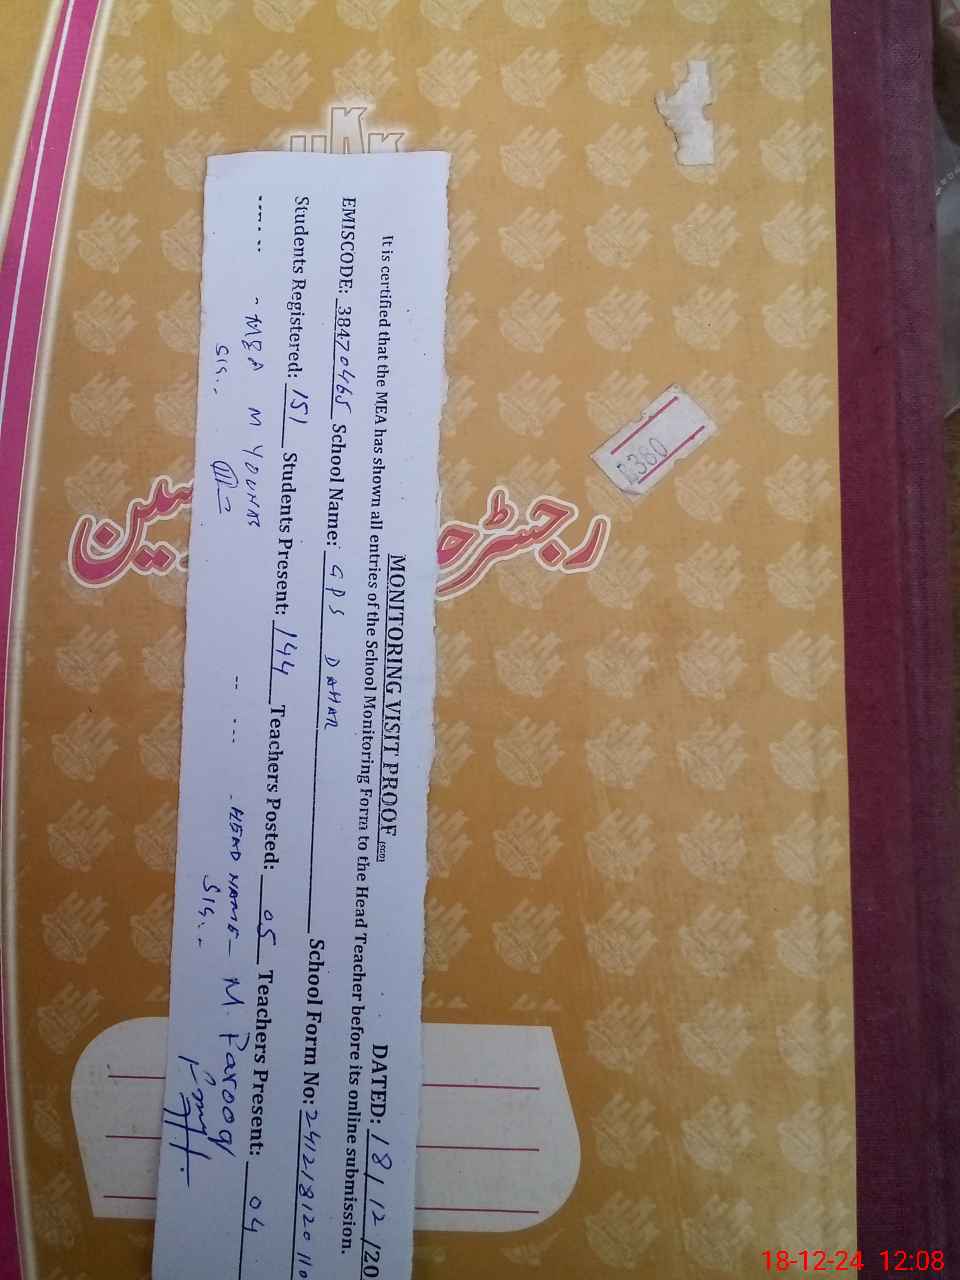 MONITORING VISIT PROOF (SED)
DATED: 18/12/20
It is certified that the MEA has shown all entries of the School Monitoring Form to the Head Teacher before its online submission.
EMISCODE: 38470465 School Name: GPS DAHAR School Form No: 24121812011o
Students Registered: 151 Students Present: 144 Teachers Posted: 05 Teachers Present: 04
MEA M YOUNAS HEAD NAME- M. Farooq
SIG.. SIG..
رجسٹر
R380
18-12-24 12:08